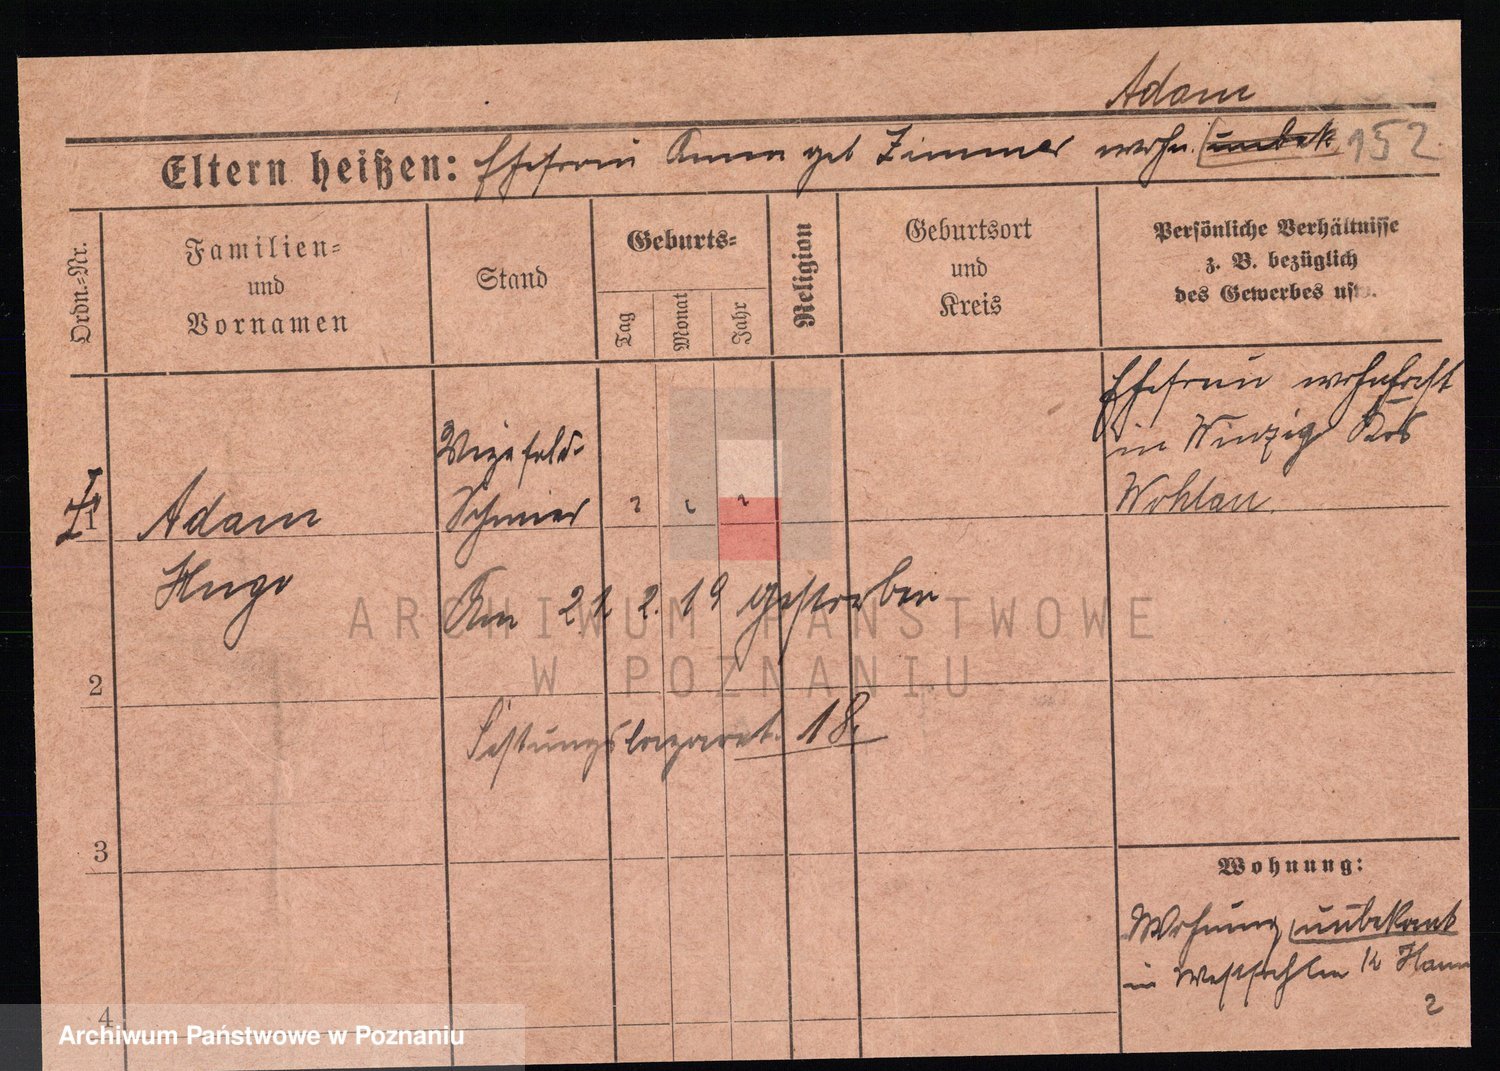 Adam
Eltern heißen: Ehefrau Anna geb Zimmer wohn. unbek 152
Ordn.-Nr.
Familien- und Vornamen
Stand
Geburts-
Tag
Monat
Jahr
Religion
Geburtsort und Kreis
Persönliche Verhältnisse
z. B. bezüglich
des Gewerbes usw.
Ehefrau wohnhaft
in Winzig Krs
Wohlau.
Vizefeld-
1 Adam Schmier ? ? ?
Hugo
Am 21 2. 19 gestorben
2
Festungslazaret. 18.
3
Wohnung:
Wohnung unbekant
in Westfahlen K Ham
?
4
ARCHIWUM PAŃSTWOWE
W POZNANIU
Archiwum Państwowe w Poznaniu